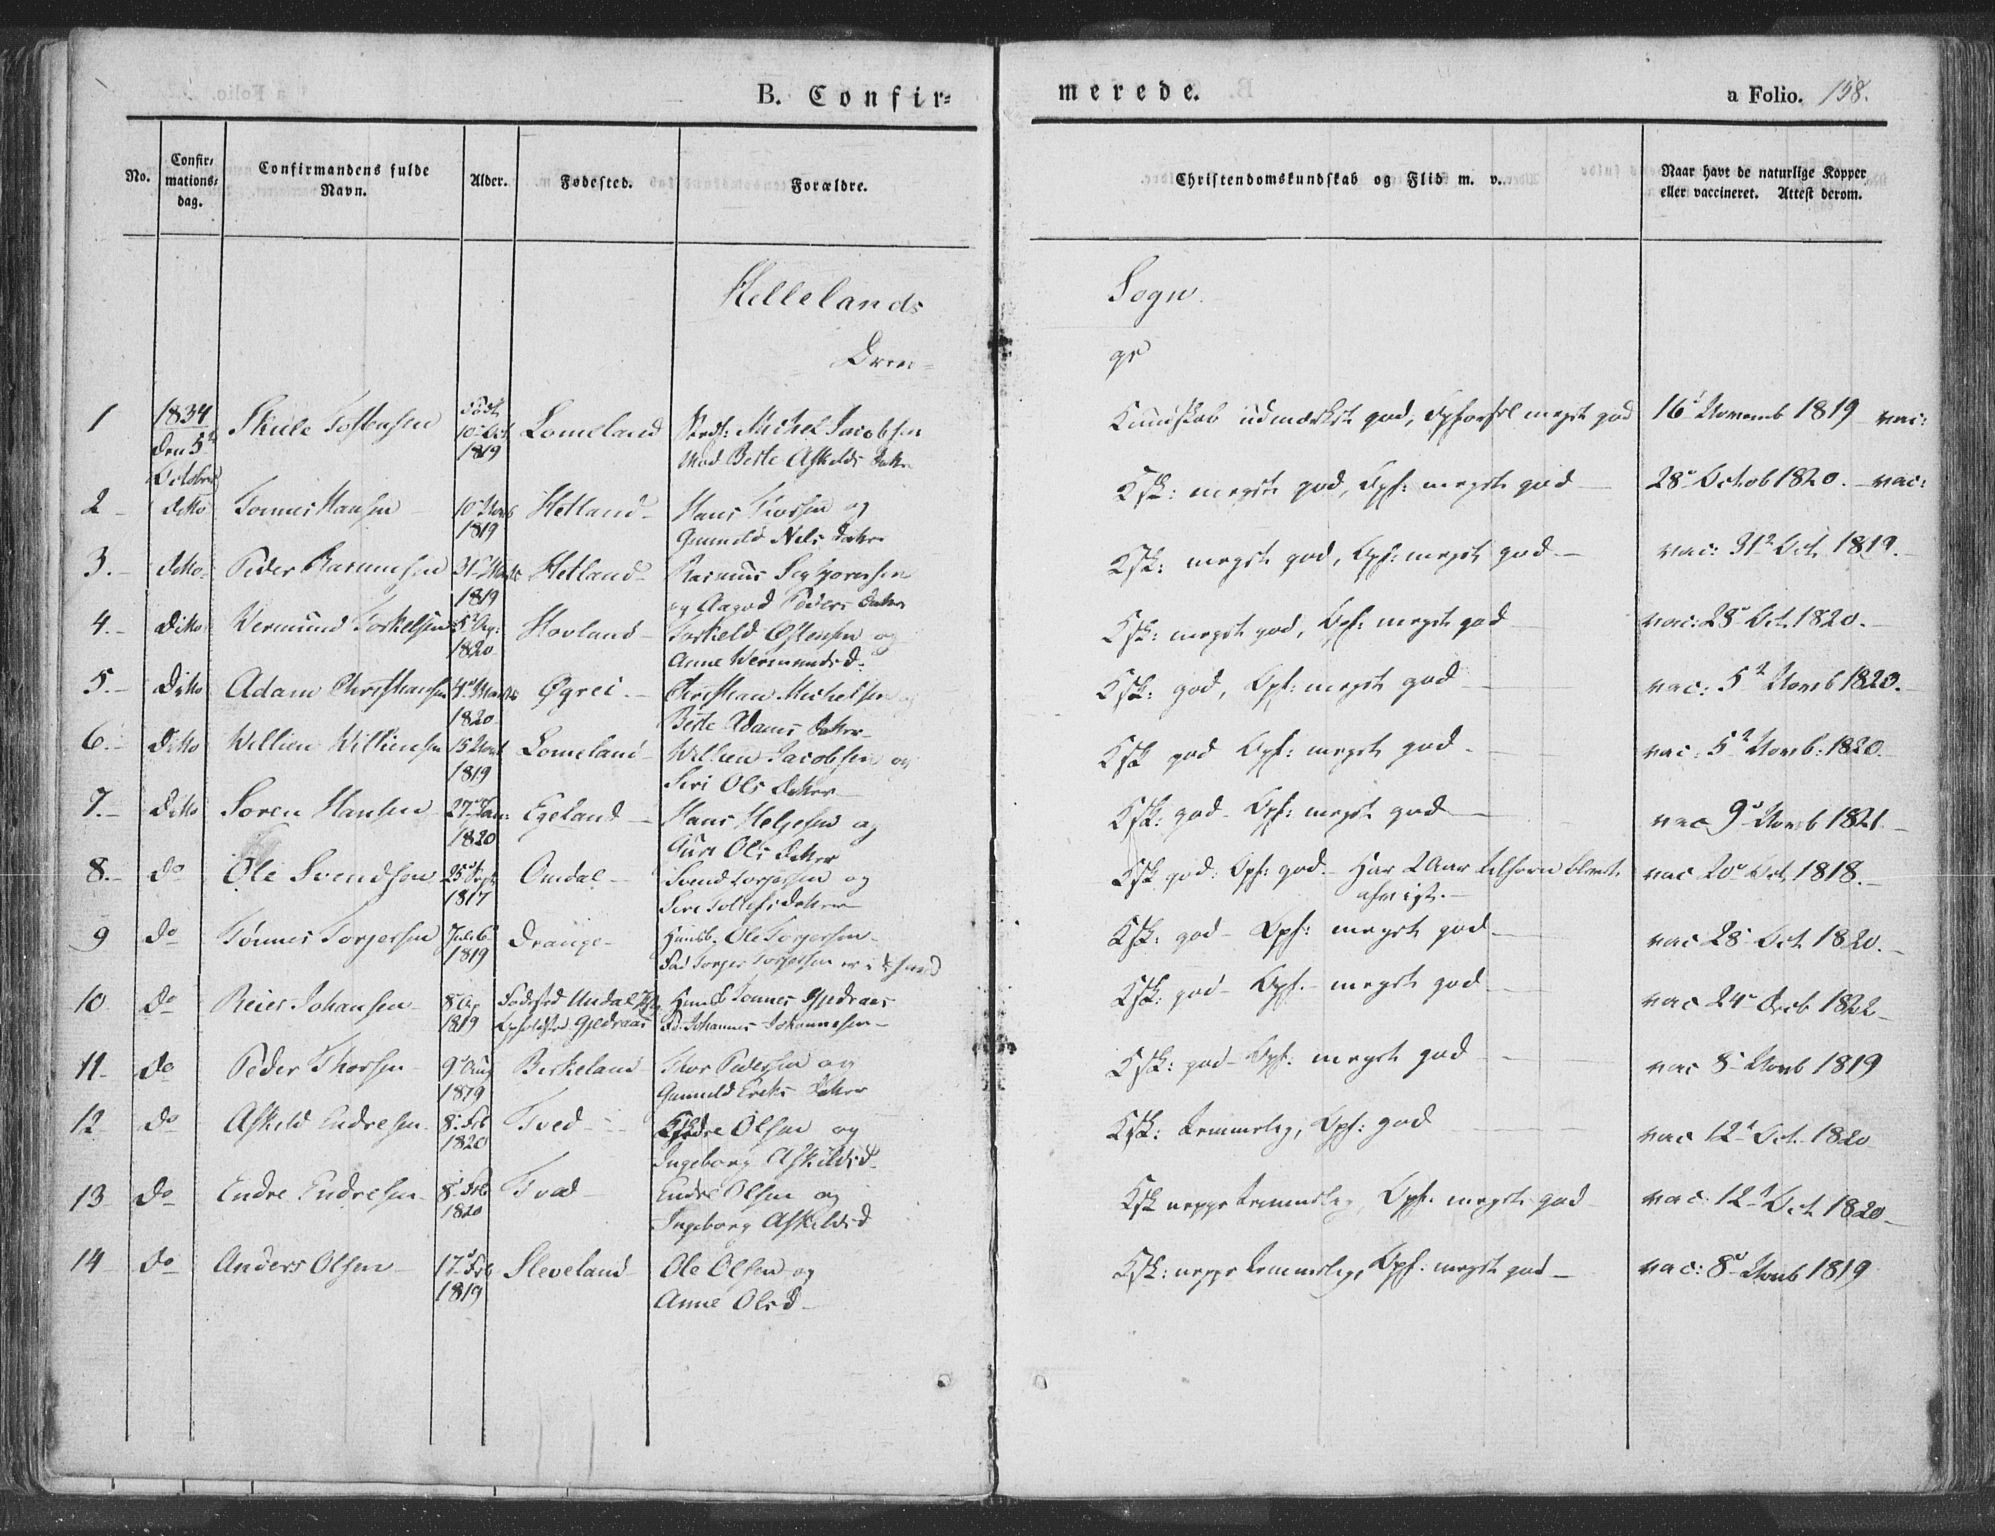 B. Confir=
merede.
a Folio. 158.
No. Confir= mations= dag. Confirmandens fulde Navn. Alder. Fødested. Forældre. Christendomskundskab og Flid m. v. Naar havt de naturlige Kopper eller vaccineret. Attest derom.
Hellelands Sogn.
Dren=
ge
1 1834 den 5te October Skule Tostensen Født 10 Oct 1819 Lomeland Michel Jacobsen
Mod Berte Askilds Datter Kundskab udmærket god, Opførsel meget god 16 Novemb 1819 vac:
2 ditto Tønnes Hansen 10 1819 Hetland Hans og
Gunnild Nels Datter Ksk: meget god, Opf: meget god 28 Octob 1820. vac:
3. ditto Peder Rasmusen 31 1819 Hetland Rasmus
og Peders Datter Ksk: meget god, Opf: meget god. vac: 31 Oct 1819.
4. ditto Wermund Torkelsen 5 Ag: 1820 Hovland Torkeld Østensen og
Anne Wermundsd. Ksk: meget god, Opf: meget god vac: 28 Oct 1820.
5. ditto Adam Christiansen 4 1820 Øgrei Christian Michelsen
Berte Adams Datter Ksk: god, Opf: meget god vac: 5 Novb 1820.
6. ditto Willum Willumsen 15 1819 Lomeland Jacobsen og
Siri Ols Datter Ksk god Opf: meget god vac: 5 Novb: 1820.
7. ditto Søren Hansen 27 Jan: 1820 Egeland Hans Helgesen og
Ols Datter Ksk: god Opf: meget god vac 9 Novb 1821.
8. do Ole Svendsen 25 Sept 1817 Omdal Svend Torjersen og
Datter Ksk god: Opf: god. Har 2 Aar tilforn blevet
afvist. vac 20 Oct 1818.
9 do Tønnes Torjersen Juli 6 1819 Drange Huusb. Ole Torjersen
Fad Torger Torjersen er Ksk: god Opf: meget god vac 28 Oct 1820.
10 do Reier Johansen 8 Ag 1819 Fødested Undal
Opholdsted Gjedraas Huusb Tønnes Gjedraas
Johannes Johannesen Ksk: god Opf. meget god vac 24 Decb 1822
11 do Peder Thorsen 9 Aug 1819 Birkeland Thor Pedersen og
Gunnild Eriks Datter Ksk: god Opf: meget god vac 8 Novb 1819
12 do Askild Endresen 8 Feb 1820 Tved Endre Olsen og
Ingeborg Askildsd. Ksk: temmelig, Opf: god vac 12 Oct 1820
13 do Endre Endresen 8 Feb 1820 Tved Endre Olsen og
Ingeborg Askildsd Ksk neppe temmelig, Opf: meget god vac 12 Oct 1820
14 do Anders Olsen 17 Feb 1819 Sleveland Ole Olsen og
Anne Olsd Ksk: neppe temmelig, Opf: meget god vac: 8 Novb 1819